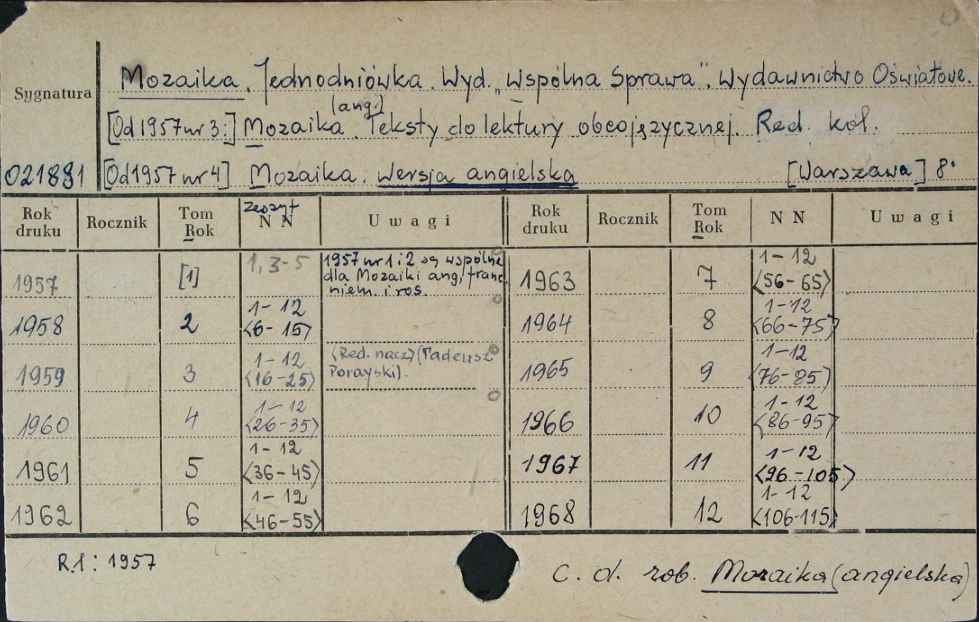 Mozaika. Jednodniówka. Wyd. „Wspólna Sprawa". Wydawnictwo Oświatowe.
Sygnatura
(ang.)
[Od 1957 nr 3:] Mozaika. Teksty do lektury obcojęzycznej. Red. kol.
021891 [Od 1957 nr 4] Mozaika. Wersja angielska [Warszawa] 8°
Rok druku Rocznik Tom Rok zeszyt N N Uwagi Rok druku Rocznik Tom Rok N N Uwagi
1957 [1] 1, 3-5 1957 nr 1 i 2 są wspólne dla Mozaiki ang, franc, niem. i ros. 1963 7 1-12 <56-65>
1958 2 1-12 <6-15> 1964 8 1-12 <66-75>
1959 3 1-12 <16-25> (Red. nacz) (Tadeusz Porayski). 1965 9 1-12 <76-85>
1960 4 1-12 <26-35> 1966 10 1-12 <86-95>
1961 5 1-12 <36-45> 1967 11 1-12 <96-105>
1962 6 1-12 <46-55> 1968 12 1-12 <106-115>
R.1: 1957
C. d. zob. Mozaika (angielska)